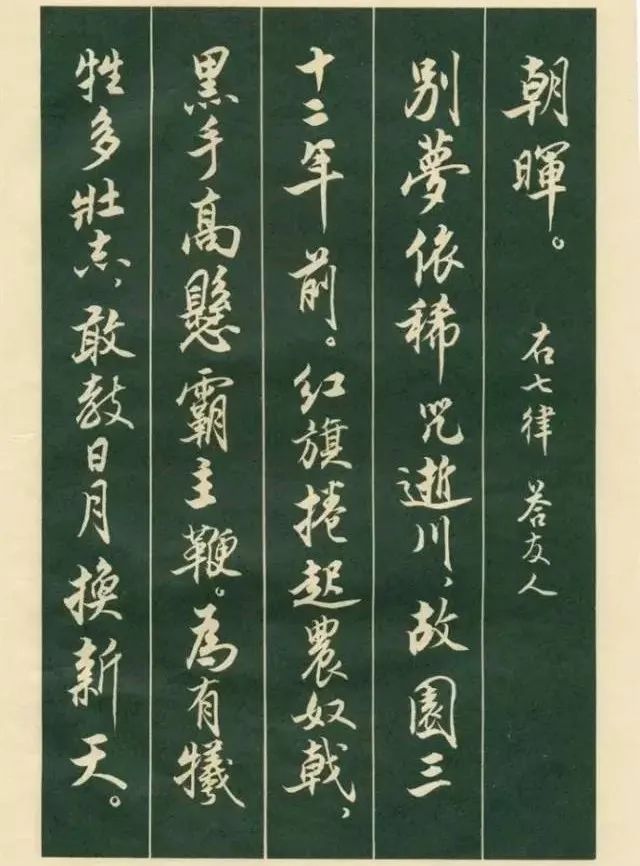 朝暉。 右七律 荅友人
别夢依稀咒逝川、故園三
十二年前。红旗捲起農奴戟、
黑手高懸霸主鞭。為有犧
牲多壯志、敢教日月換新天。